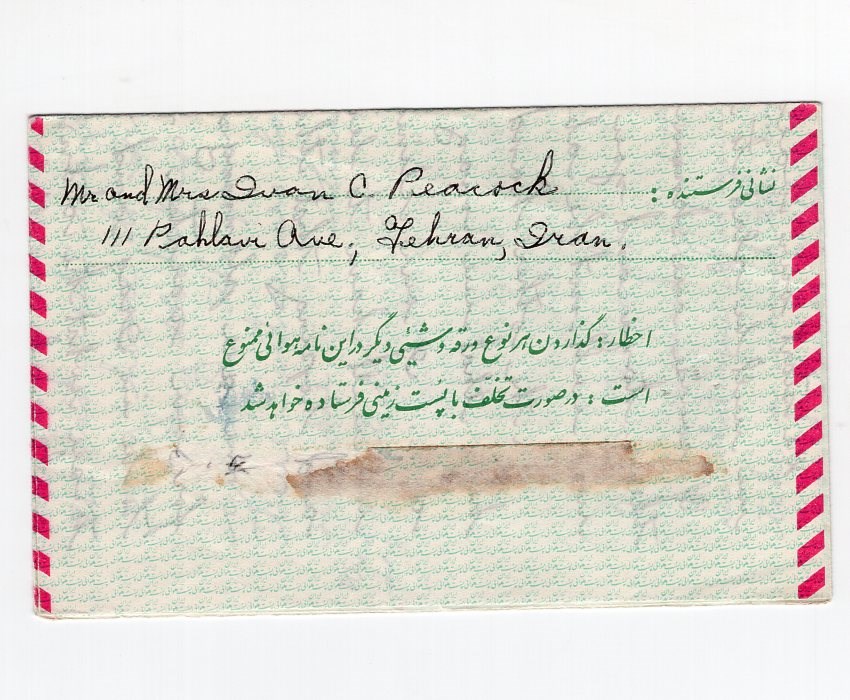 نشانی فرستنده :
Mr and Mrs Ivan C Peacock
111 Pahlavi Ave., Tehran, Iran.
اخطار : گذاردن هر نوع ورقه و شیئی دیگر در این نامه هوائی ممنوع
است : در صورت تخلف با پست زمینی فرستاده خواهد شد